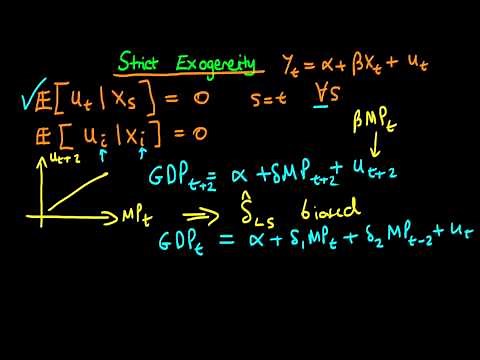 Strict Exogeneity Y_t = α + βX_t + u_t
✓ E[u_t | X_s] = 0 s=t ∀s
E[u_i | X_i] = 0
βMP_t
u_{t+2}
GDP_{t+2} = α + δMP_{t+2} + u_{t+2}
MP_t ⇒ δ̂_{LS} biased
GDP_t = α + δ_1MP_t + δ_2MP_{t-2} + u_t